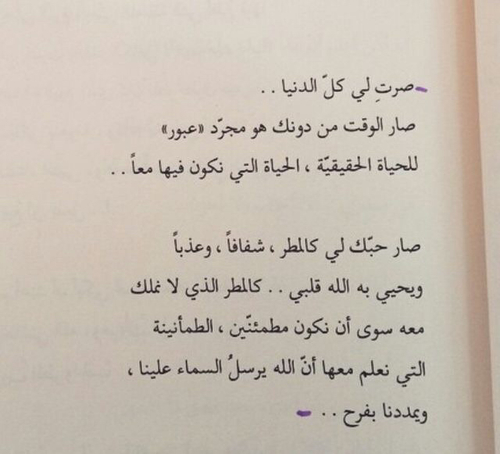 صرتِ لي كلّ الدنيا . .
صار الوقت من دونك هو مجرّد «عبور»
للحياة الحقيقيّة ، الحياة التي نكون فيها معاً . .
صار حبّك لي كالمطر ، شفافاً ، وعذباً
ويحيي به الله قلبي . . كالمطر الذي لا نملك
معه سوى أن نكون مطمئنّين ، الطمأنينة
التي نعلم معها أنّ الله يرسلُ السماء علينا ،
ويمددنا بفرح . .